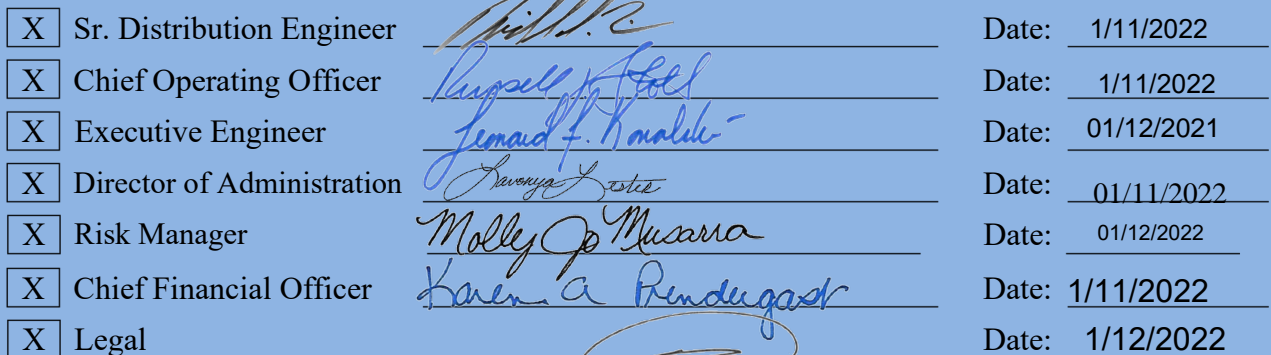 X Sr. Distribution Engineer Date: 1/11/2022
X Chief Operating Officer Russell Date: 1/11/2022
X Executive Engineer Leonard F. Date: 01/12/2021
X Director of Administration Lavonya Lester Date: 01/11/2022
X Risk Manager Molly Jo Musarra Date: 01/12/2022
X Chief Financial Officer Karen A Prendergast Date: 1/11/2022
X Legal Date: 1/12/2022